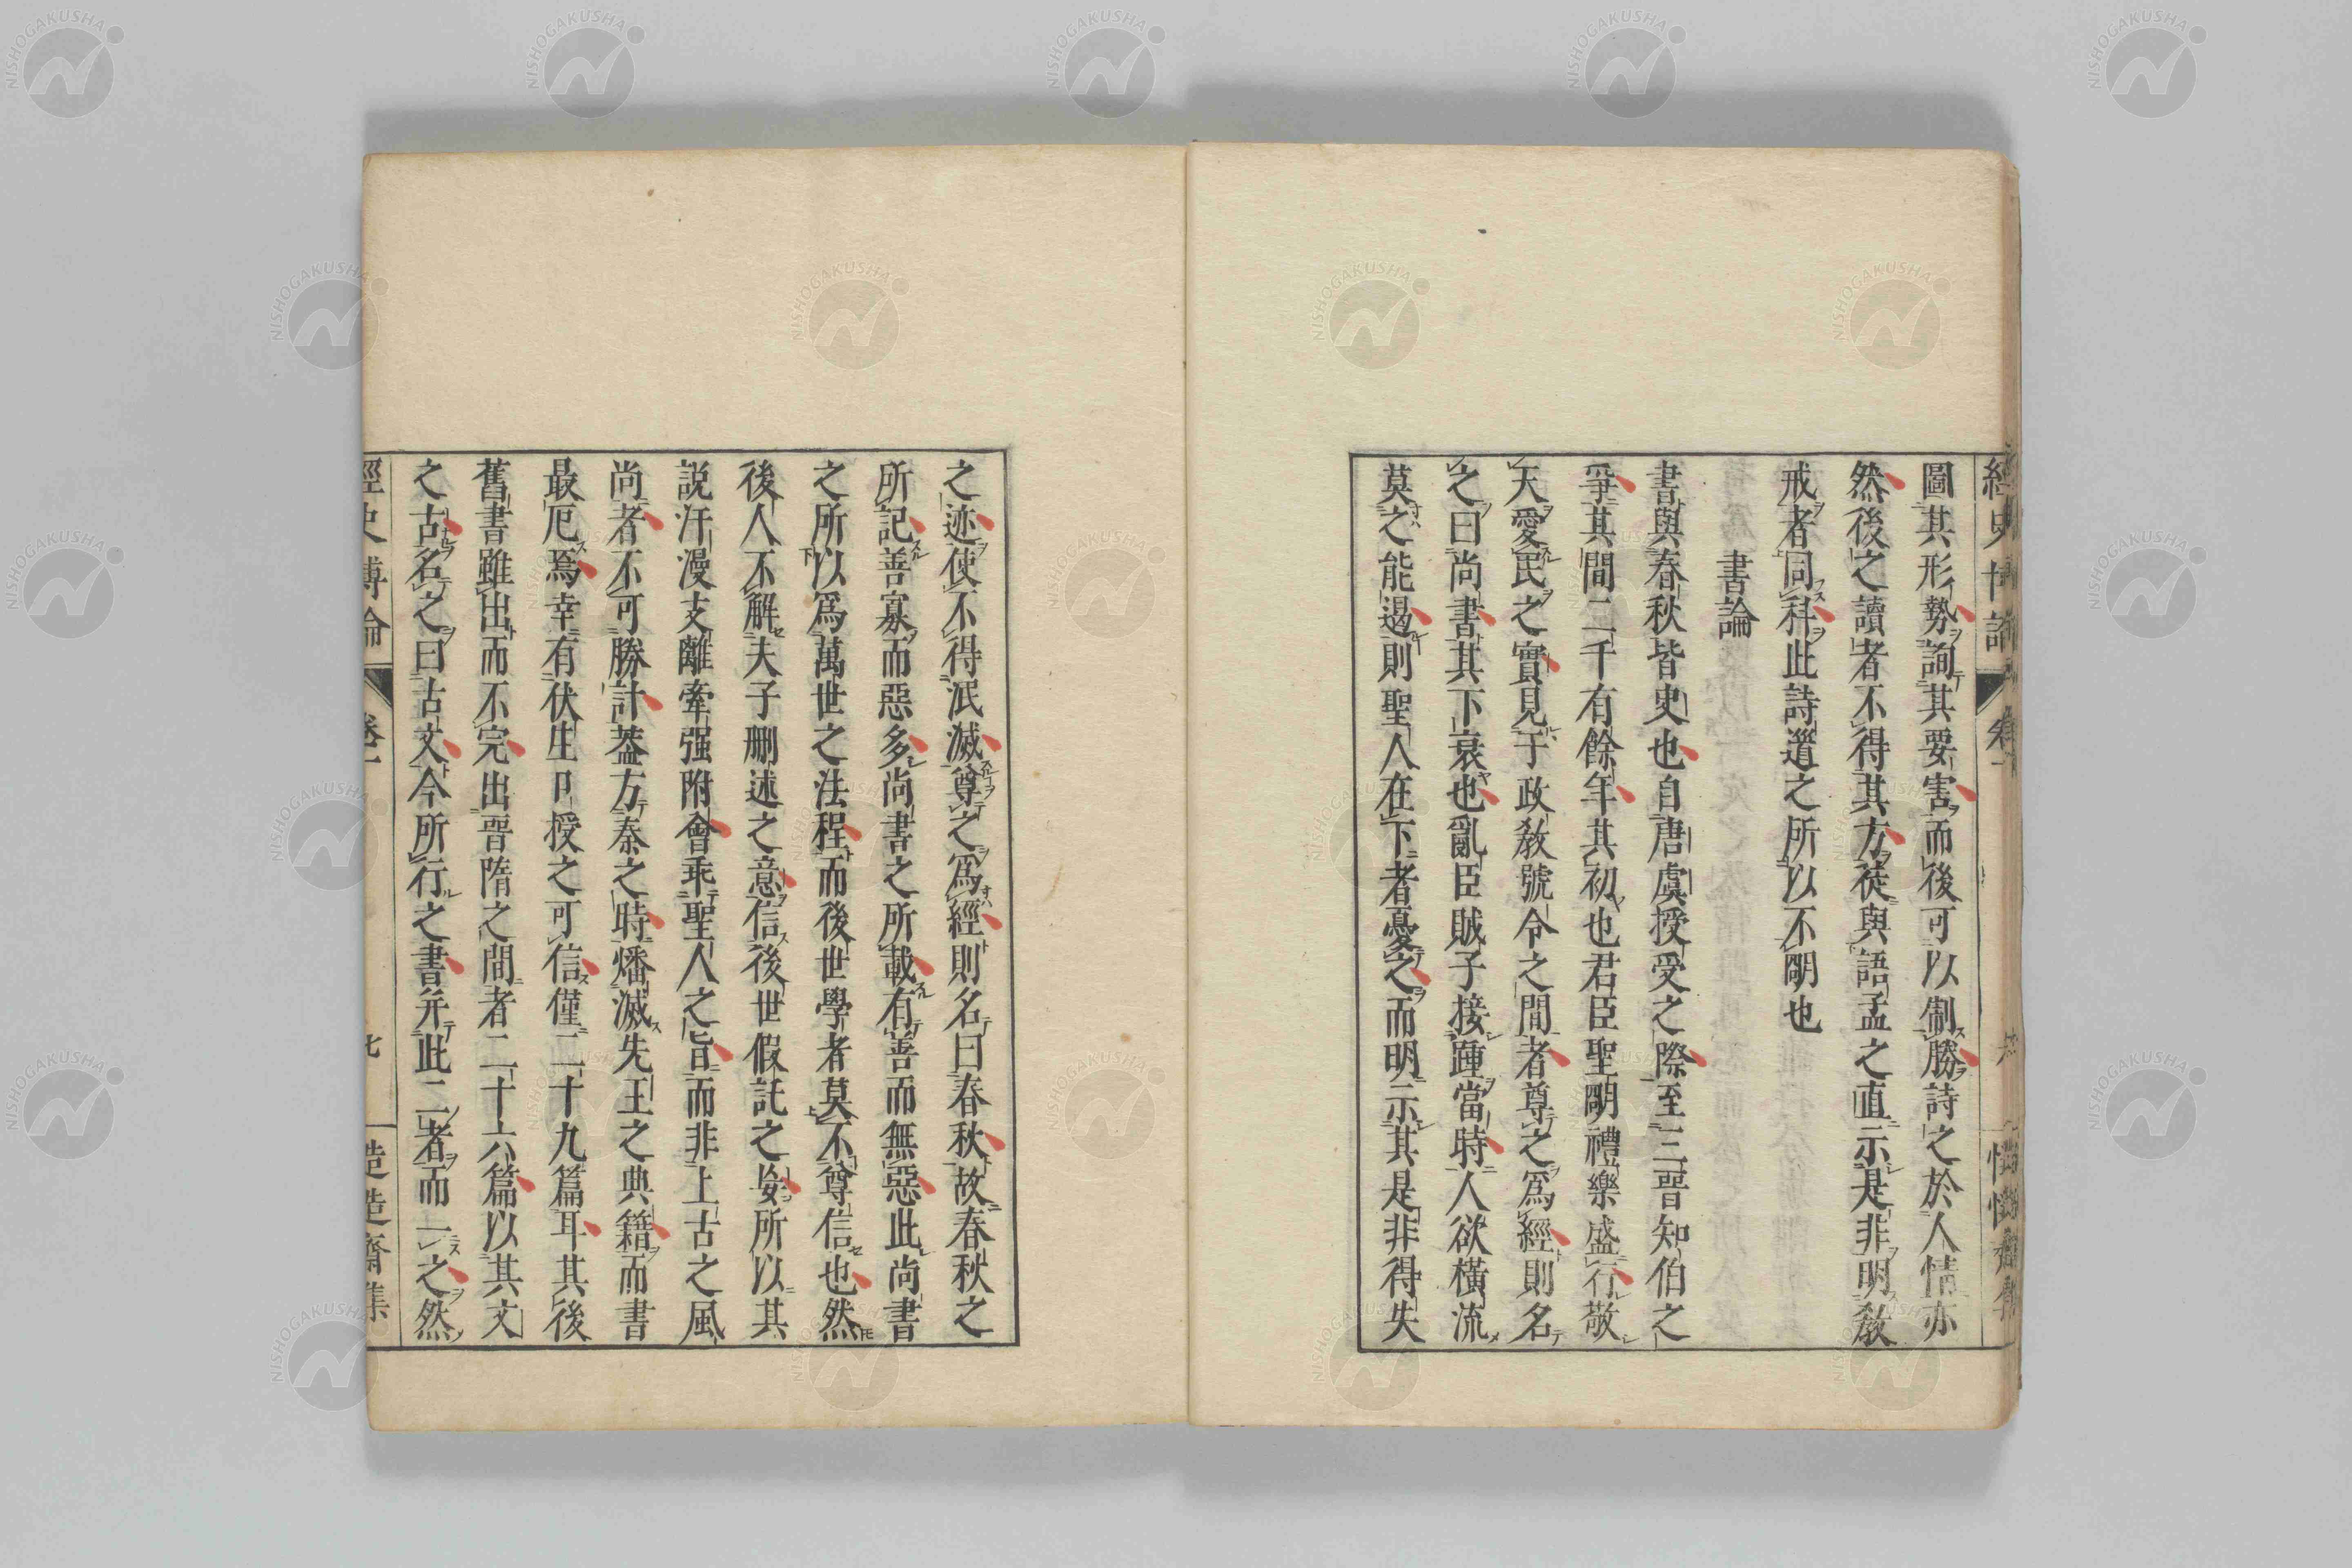 圖其形勢詢其要害而後可以制勝詩之於人情亦
然後之讀者不得其方徒與語孟之直示是非明敎
戒者同科此詩道之所以不明也
書論
書與春秋皆史也自唐虞授受之際至三晉知伯之
爭其間二千有餘年其初也君臣聖明禮樂盛行敬
天愛民之實見于政敎號令之間者尊之爲經則名
之曰尚書其下衰也亂臣賊子接踵當時人欲橫流
莫之能遏則聖人在下者憂之而明示其是非得失
之迹使不得泯滅尊之爲經則名曰春秋故春秋之
所記善寡而惡多尚書之所載有善而無惡此尚書
之所以爲萬世之法程而後世學者莫不尊信也然
後人不解夫子刪述之意信後世假託之妄所以其
說汗漫支離牽强附會乖聖人之旨而非上古之風
尚者不可勝計葢方秦之時燔滅先王之典籍而書
最厄焉幸有伏生口授之可信僅二十九篇耳其後
舊書雖出而不完出晉隋之間者二十六篇以其文
之古名之曰古文今所行之書并此二者而一之然
經史博論
卷一
七
NISHOGAKUSHA